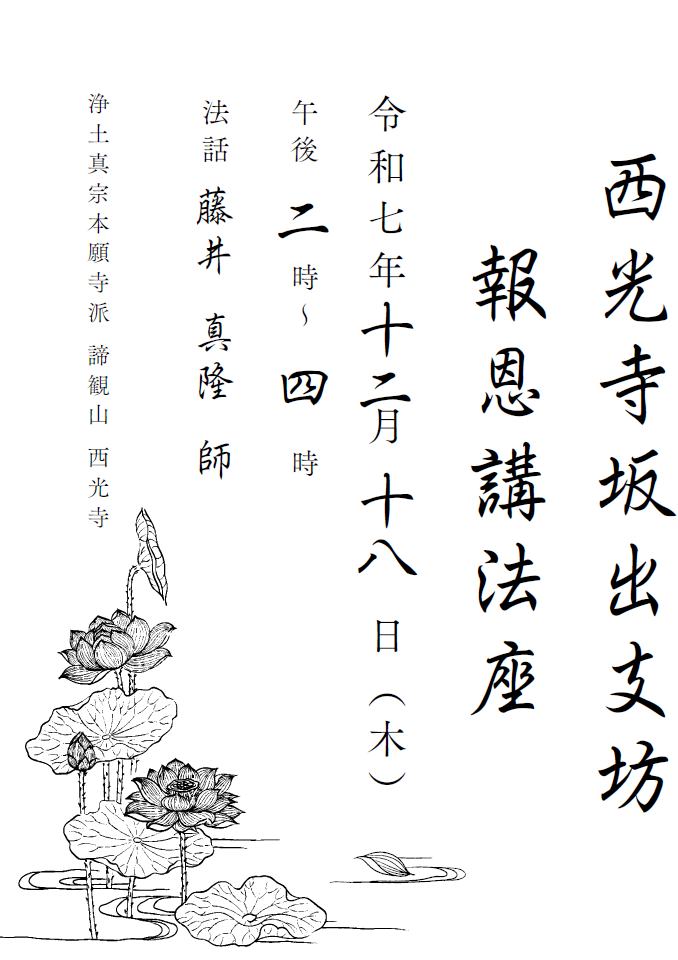 西光寺坂出支坊
報恩講法座
令和七年十二月十八日（木）
午後二時～四時
法話 藤井 真隆 師
浄土真宗本願寺派 諦観山 西光寺